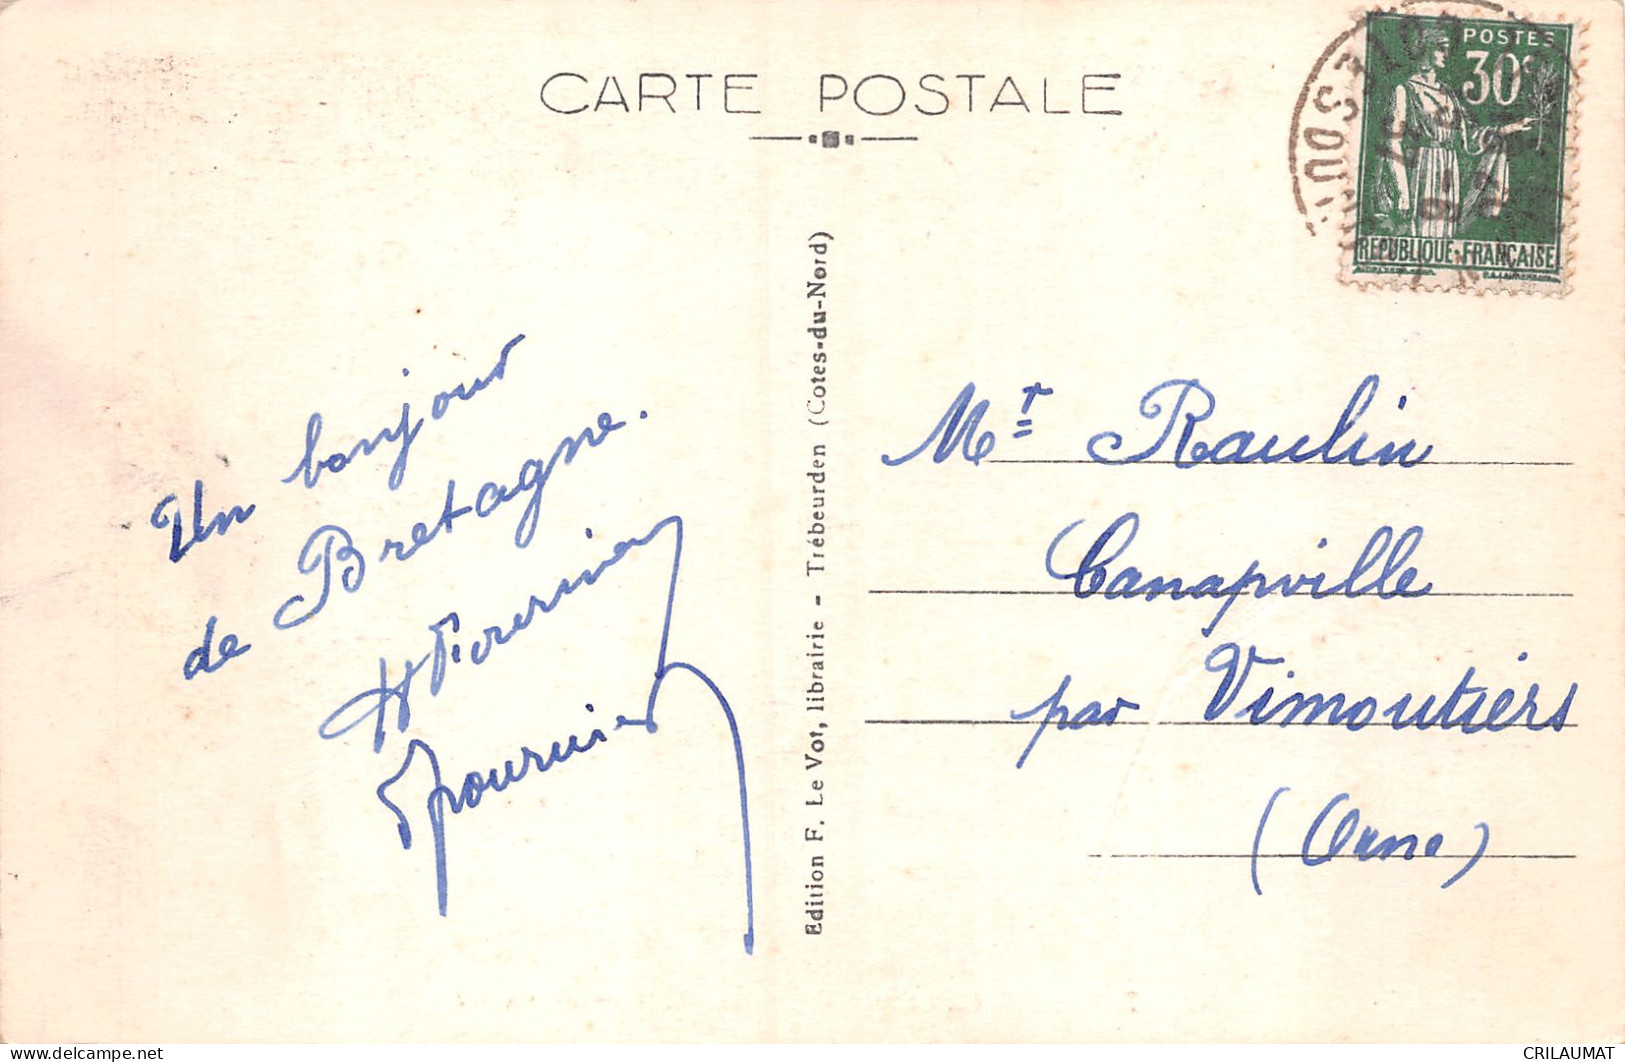 CARTE POSTALE
POSTES
30c
REPUBLIQUE-FRANÇAISE
COTES DU
37
Un bonjour
de Bretagne.
Edition F. Le Vot, librairie - Trébeurden (Cotes-du-Nord)
Mr Raulin
Canapville
par Vimoutiers
(Orne)
CRILAUMAT
delcampe.net